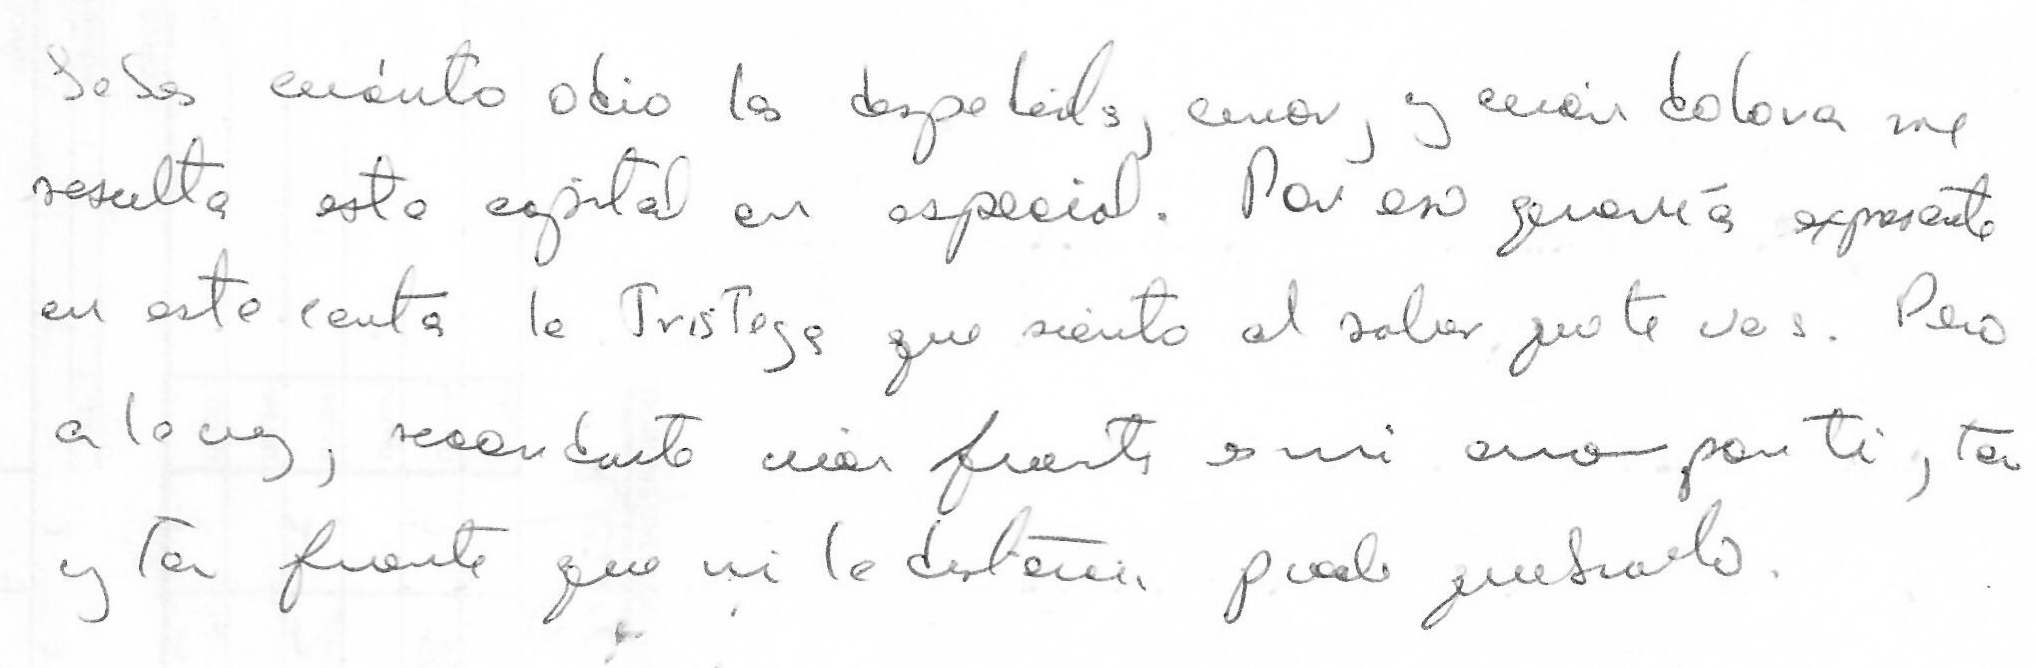 Sabes cuánto odio las despedidas, amor, y cuán dolorosa me
resulta esta en especial. Por eso querría expresarte
en esta carta la Tristeza que siento al saber que te vas. Pero
a la vez, recordarte cuán fuerte es mi amor por ti, tan
y tan fuerte que ni la distancia puede quebrarlo.